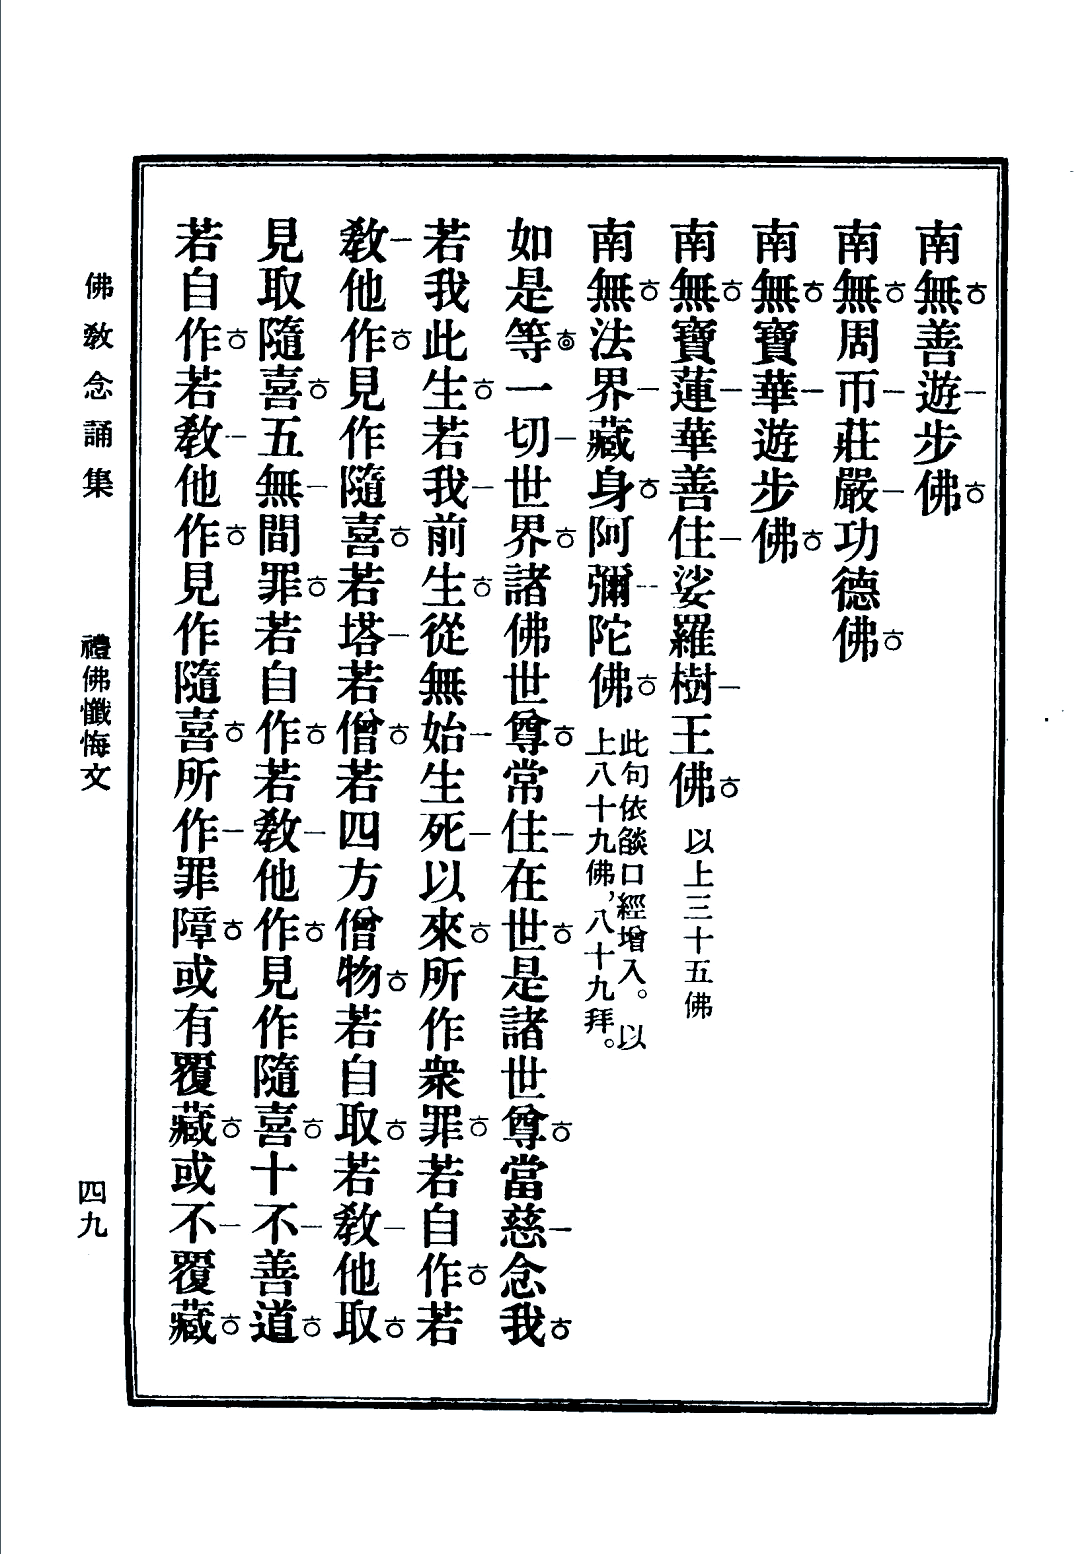 南無善遊步佛
南無周帀莊嚴功德佛
南無寶華遊步佛
南無寶蓮華善住娑羅樹王佛 以上三十五佛
南無法界藏身阿彌陀佛 此句依燄口經增入。以上八十九佛，八十九拜。
如是等一切世界諸佛世尊常住在世是諸世尊當慈念我
若我此生若我前生從無始生死以來所作衆罪若自作若
敎他作見作隨喜若塔若僧若四方僧物若自取若敎他取
見取隨喜五無間罪若自作若敎他作見作隨喜十不善道
若自作若敎他作見作隨喜所作罪障或有覆藏或不覆藏
佛敎念誦集
禮佛懺悔文
四九